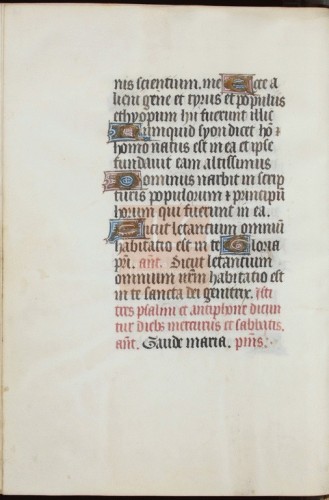 nis scientium. me Ecce a
lieni gene et tyrus et populus
ethyopum hii fuerunt illic
Numquid syon dicet ho ꝛ
homo natus est in ea et ipse
fundavit eam altissimus
Dominus narbit in scrip
turis populorum ꝛ principū
horum qui fuerunt in ea.
Sicut letantium omniū
habitatio est in te Gloria
pr̄i. ant. Sicut letantium
omnium nr̄m habitatio est
in te sancta dei genitrix. Isti
tres psalmi et antiphone dicun
tur dieb̄s mercurii et sabbatis.
ant. Gaude maria. pm̄s.